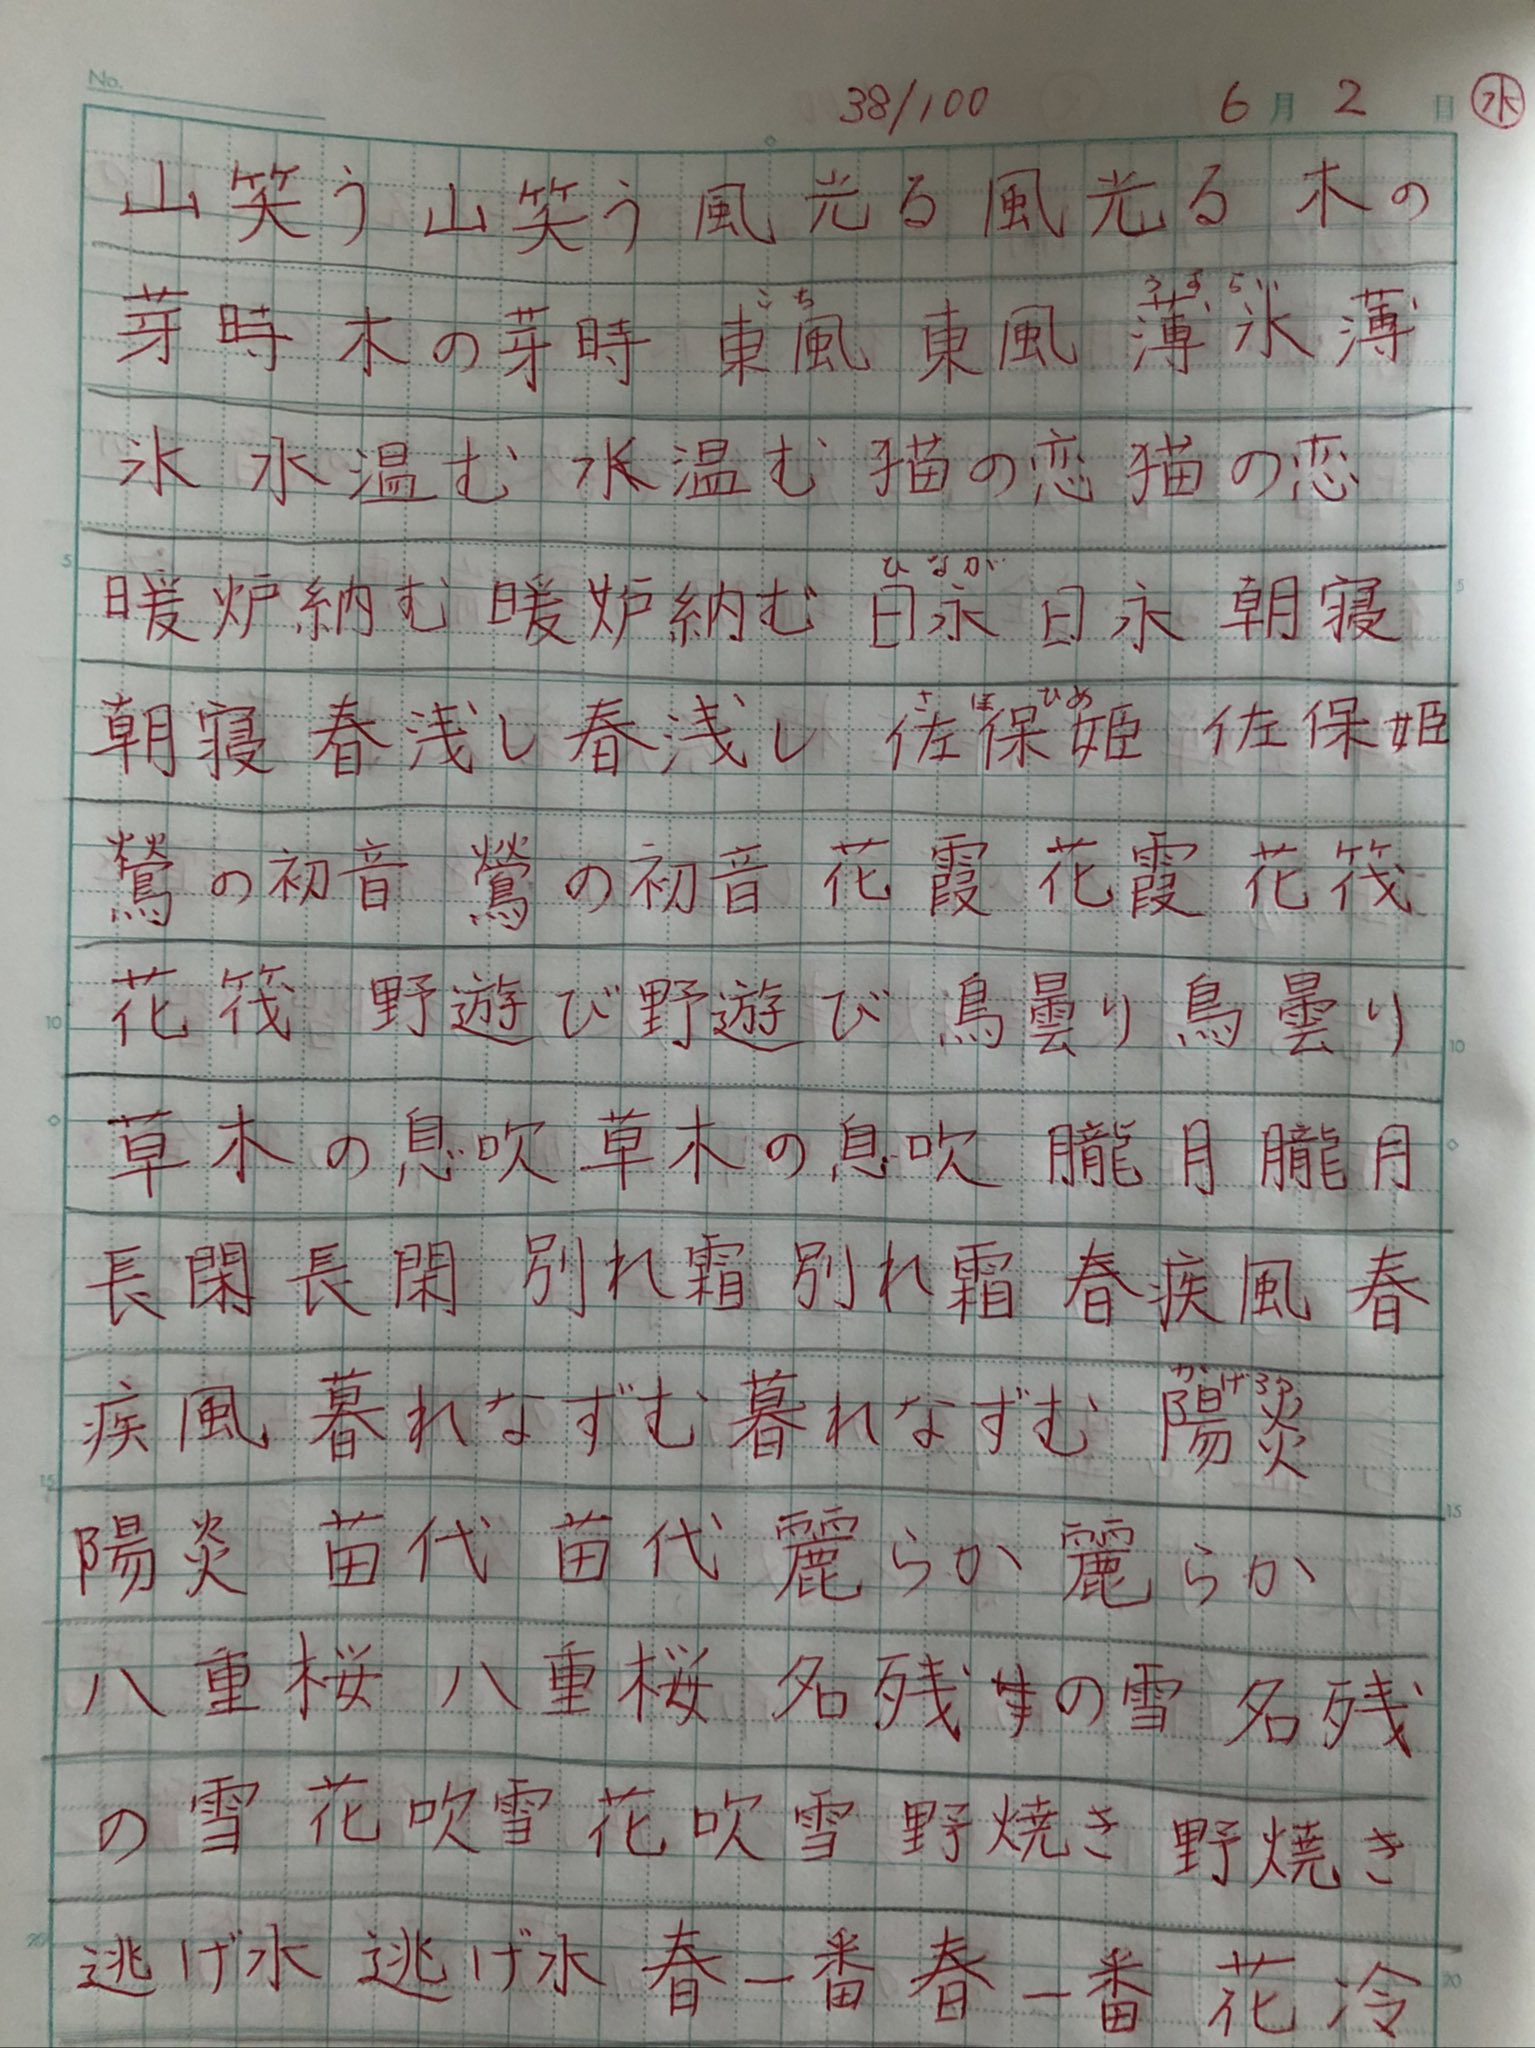 No. 38/100 6月2日 ㊌
山笑う 山笑う 風光る 風光る 木の
芽時 木の芽時 東風 東風 薄氷 薄
こち うすらい
氷 水温む 水温む 猫の恋 猫の恋
暖炉納む 暖炉納む 日永 日永 朝寝
ひなが
朝寝 春浅し 春浅し 佐保姫 佐保姫
さほひめ
鶯の初音 鶯の初音 花霞 花霞 花筏
花筏 野遊び 野遊び 鳥曇り 鳥曇り
草木の息吹 草木の息吹 朧月 朧月
長閑 長閑 別れ霜 別れ霜 春疾風 春
疾風 暮れなずむ 暮れなずむ 陽炎
かげろう
陽炎 苗代 苗代 麗らか 麗らか
八重桜 八重桜 名残の雪 名残
の雪 花吹雪 花吹雪 野焼き 野焼き
逃げ水 逃げ水 春一番 春一番 花冷
5
5
10
10
15
15
20
20